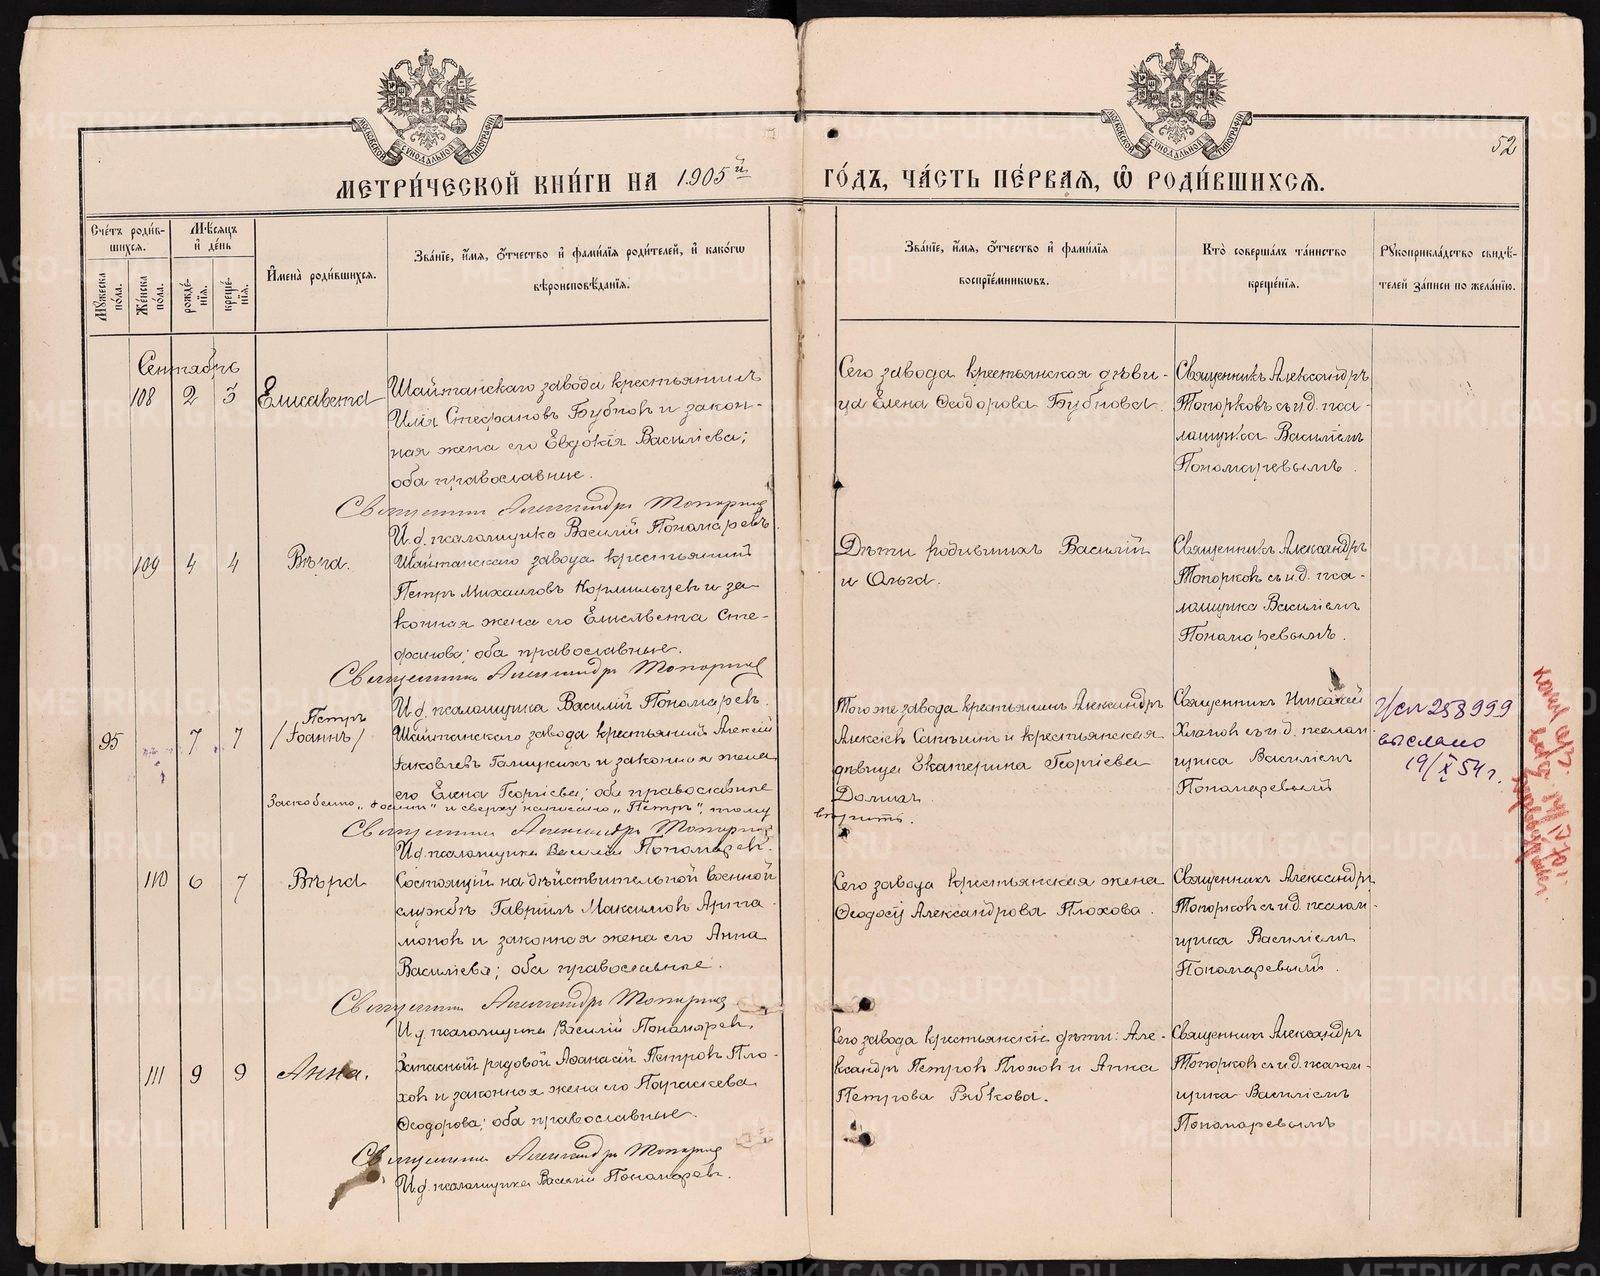 МОСКОВСКОЙ СѴНОДАЛЬНОЙ ТИПОГРАФІИ
МОСКОВСКОЙ СѴНОДАЛЬНОЙ ТИПОГРАФІИ
52
МЕТРИ́ЧЕСКОЙ КНИ́ГИ НА 1905й
ГО́ДЪ, ЧА́СТЬ ПЕ́РВАЯ, Ѡ РОДИ́ВШИХСЯ.
Сче́тъ роди́в-
шихся.
Мꙋжеска по́ла.
Же́нска по́ла.
Мѣ́сяцъ
и де́нь
рожде́нія.
креще́нія.
Имена̀ роди́вшихся.
Зва́ніе, и́мя, о́тчество и фами́лія роди́телей, и како́гѡ
вѣроисповѣ́данія.
Зва́ніе, и́мя, о́тчество и фами́лія
воспріе́мникѡвъ.
Кто̀ соверша́лъ та́инство
креще́нія.
Рꙋкоприкла́дство свидѣ́-
телей за́писи по жела́нію.
Сентябрь
108 2 3 Елисавета
Шайтанскаго завода крестьянинъ
Илія Стефановъ Бубновъ и закон-
ная жена его Евдокія Василіева;
оба православные.
Священникъ Александръ Топорковъ
И. д. псаломщика Василій Пономаревъ.
Сего завода крестьянская дѣви-
ца Елена Ѳеодорова Бубнова.
Священникъ Александръ
Топорковъ съ и. д. пса-
ломщика Василіемъ
Пономаревымъ.
109 4 4 Вѣра.
Шайтанскаго завода крестьянинъ
Петръ Михаиловъ Кормильцевъ и за-
конная жена его Елисавета Сте-
фанова; оба православные.
Священникъ Александръ Топорковъ
И. д. псаломщика Василій Пономаревъ.
Дѣти родившихъ Василій
и Ольга.
Священникъ Александръ
Топорковъ съ и. д. пса-
ломщика Василіемъ
Пономаревымъ.
95 7 7 Петръ
/Іоаннъ/
Шайтанскаго завода крестьянинъ Алексій
Іаковлевъ Галицкихъ и законная жена
его Елена Георгіева; оба православные
Заскоблено „Іоаннъ“ и сверху написано „Петръ“, тому
вѣрить.
Священникъ Александръ Топорковъ
И. д. псаломщика Василій Пономаревъ.
Того же завода крестьянинъ Александръ
Алексіевъ и крестьянская
дѣвица Екатерина Георгіева
Священникъ
Хлыновъ съ и. д. псалом-
щика Василіемъ
Пономаревымъ
258999
выслано
19/X 54 г.
110 6 7 Вѣра
Состоящій на дѣйствительной военной
службѣ Гавріилъ Максимовъ Арта-
моновъ и законная жена его Анна
Василіева; оба православные.
Священникъ Александръ Топорковъ
И. д. псаломщика Василій Пономаревъ.
Сего завода крестьянская жена
Ѳеодосія Александрова Плохова.
Священникъ Александръ
Топорковъ съ и. д. псалом-
щика Василіемъ
Пономаревымъ.
111 9 9 Анна.
Запасный рядовой Аѳанасій Петровъ Пло-
ховъ и законная жена его Параскева
Ѳеодорова; оба православные.
Священникъ Александръ Топорковъ
И. д. псаломщика Василій Пономаревъ.
Сего завода крестьянскіе дѣти: Але-
ксандръ Петровъ Плоховъ и Анна
Петрова Рябкова.
Священникъ Александръ
Топорковъ съ и. д. псалом-
щика Василіемъ
Пономаревымъ
METRIKI.GASO-URAL.RU